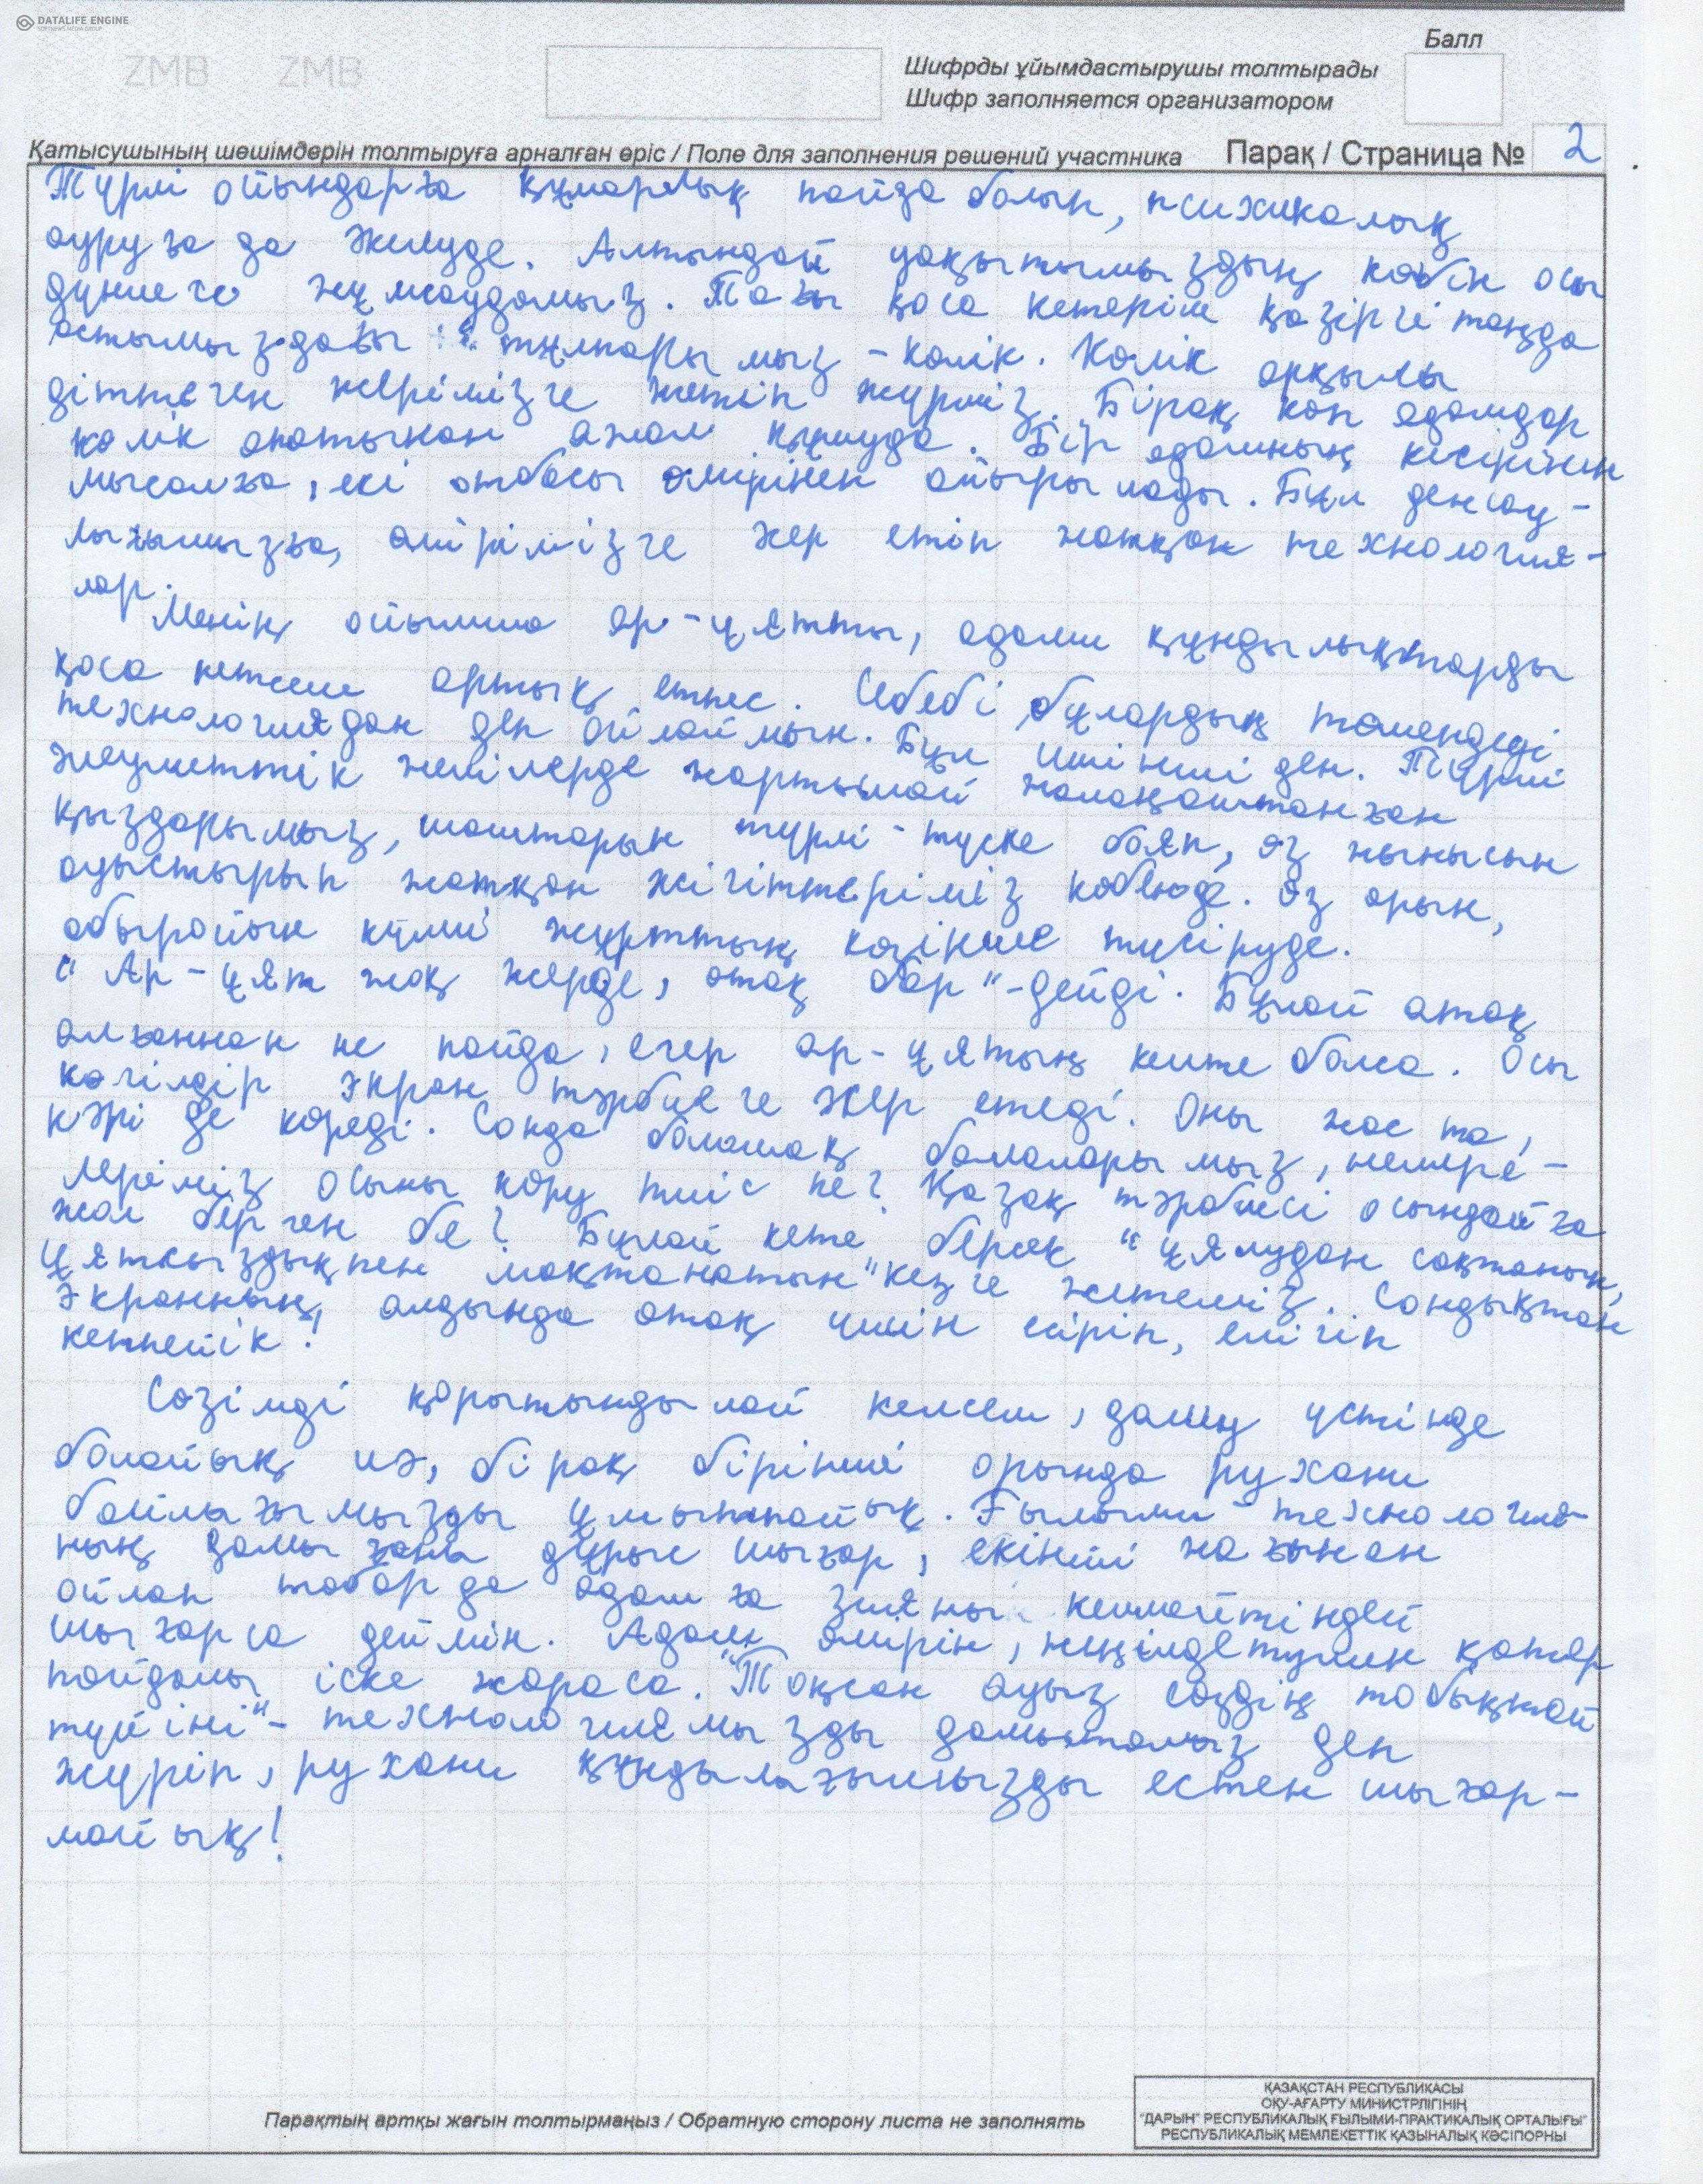 DATALIFE ENGINE
SOFTNEWS MEDIA GROUP
ZMB ZMB
Балл
Шифрды ұйымдастырушы толтырады
Шифр заполняется организатором
Қатысушының шешімдерін толтыруға арналған өріс / Поле для заполнения решений участника Парақ / Страница № 2
Түрлі ойындарға құмарлық пайда болып, психикалық
ауруға да жылуде. Алтындай уақытымыздың көбін осы
дүниеге жұмсаудамыз. Тағы қоса кетерім қазіргі таңда
астымыздағы тұлпарымыз - көлік. Көлік арқылы
діттеген жерімізге жетіп жүрміз. Бірақ көп адамдар
көлік апатынан ажал құшуда. Бір адамның кесірінен
мысалға, екі отбасы өмірінен айырылады. Бұл денсау-
лығымызға, өмірімізге кері етіп жатқан технология-
лар.
Менің ойымша ар-ұятты, адами құндылықтарды
қоса кетсем артық етпес. Себебі бұлардың төмендеуі
технологиядан деп ойлаймын. Бұл үшінші ден. Түрлі
әлеуметтік желілерде жартылай жалаңаштанған
қыздарымыз, шаштарын түрлі-түске боян, өз жынысын
ауыстырып жатқан жігіттеріміз көбеюде. Өз арын,
абыройын күллі жұрттың көзінше түсіруде.
"Ар-ұят жоқ жерде, атақ бар"-дейді. Бұлай атақ
алғаннан не пайда, егер ар-ұятың кетте болса. Осы
көгілдір экран тәрбиеге кері етеді. Оны жас та,
кәрі де көреді. Сонда болашақ балаларымыз, немере-
леріміз осыны көру тиіс пе? Қазақ тәрбиесі осындайға
жол берген бе? Бұлай кете берсек "ұялудан сақтанып,
ұятсыздықпен мақтанатын" кезге жетеміз. Сондықтан
экранның алдында атақ үшін есіріп, елігіп
кетпейік!
Сөзімді қорытындылай келсем, даму үстінде
болайық иә, бірақ бірінші орында рухани
байлығымызды ұмытпайық. Ғылыми технология-
ның дамығаны дұрыс шығар, екінші жағынан
ойлап табарда адамға зияны келмейтіндей
шығарса деймін. Адам өмірін, жеңілдетумен қатар
пайдалы іске жараса. "Тоқсан ауыз сөздің тобықтай
түйіні" - технологиямызды дамытамыз деп
жүріп, рухани құндылығымызды естен шығар-
майық!
Парақтың артқы жағын толтырмаңыз / Обратную сторону листа не заполнять
ҚАЗАҚСТАН РЕСПУБЛИКАСЫ
ОҚУ-АҒАРТУ МИНИСТРЛІГІНІҢ
"ДАРЫН" РЕСПУБЛИКАЛЫҚ ҒЫЛЫМИ-ПРАКТИКАЛЫҚ ОРТАЛЫҒЫ"
РЕСПУБЛИКАЛЫҚ МЕМЛЕКЕТТІК ҚАЗЫНАЛЫҚ КӘСІПОРНЫ